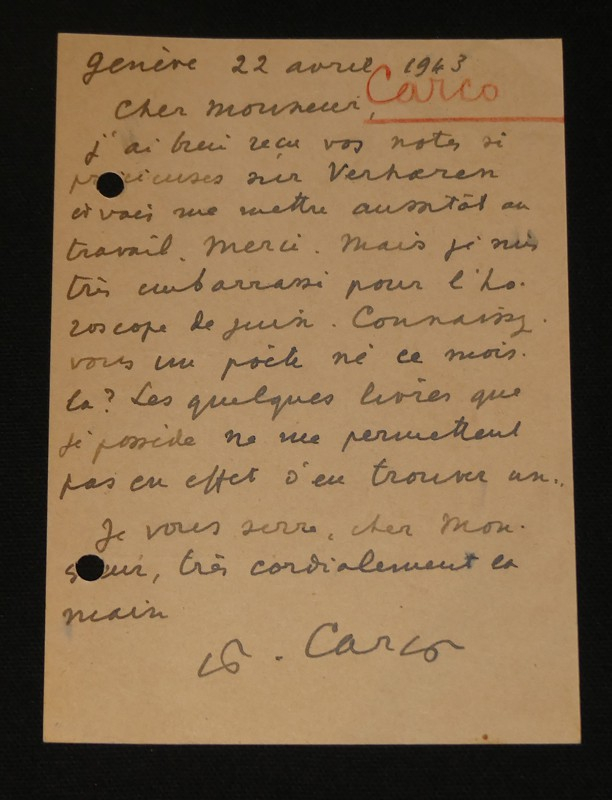 Genève 22 avril 1943
Carco
Cher Monsieur,
j'ai bien reçu vos notes si
précieuses sur Verhæren
et vais me mettre aussitôt au
travail. Merci. Mais je suis
très embarrassé pour l'ho-
roscope de juin. Connaissez-
vous un poète né ce mois-
là? Les quelques livres que
je possède ne me permettent
pas en effet d'en trouver un..
Je vous serre, cher Mon-
sieur, très cordialement la
main
F. Carco